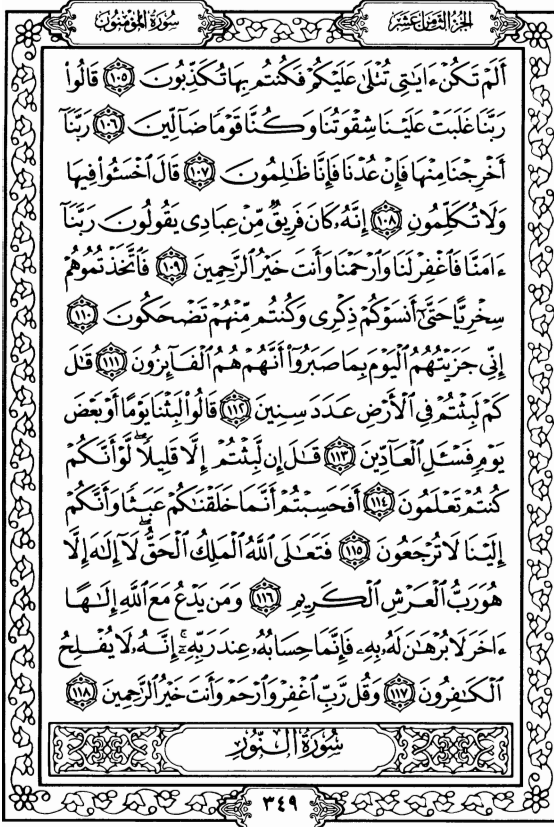 سُورَةُ المُؤْمِنُون
الجُزْءُ الثَّامِنَ عَشَرَ
أَلَمْ تَكُنْ ءَايَٰتِى تُتْلَىٰ عَلَيْكُمْ فَكُنتُم بِهَا تُكَذِّبُونَ ١٠٥ قَالُوا۟
رَبَّنَا غَلَبَتْ عَلَيْنَا شِقْوَتُنَا وَكُنَّا قَوْمًا ضَآلِّينَ ١٠٦ رَبَّنَآ
أَخْرِجْنَا مِنْهَا فَإِنْ عُدْنَا فَإِنَّا ظَٰلِمُونَ ١٠٧ قَالَ ٱخْسَـُٔوا۟ فِيهَا
وَلَا تُكَلِّمُونِ ١٠٨ إِنَّهُۥ كَانَ فَرِيقٌ مِّنْ عِبَادِى يَقُولُونَ رَبَّنَآ
ءَامَنَّا فَٱغْفِرْ لَنَا وَٱرْحَمْنَا وَأَنتَ خَيْرُ ٱلرَّٰحِمِينَ ١٠٩ فَٱتَّخَذْتُمُوهُمْ
سِخْرِيًّا حَتَّىٰٓ أَنسَوْكُمْ ذِكْرِى وَكُنتُم مِّنْهُمْ تَضْحَكُونَ ١١٠
إِنِّى جَزَيْتُهُمُ ٱلْيَوْمَ بِمَا صَبَرُوٓا۟ أَنَّهُمْ هُمُ ٱلْفَآئِزُونَ ١١١ قَٰلَ
كَمْ لَبِثْتُمْ فِى ٱلْأَرْضِ عَدَدَ سِنِينَ ١١٢ قَالُوا۟ لَبِثْنَا يَوْمًا أَوْ بَعْضَ
يَوْمٍ فَسْـَٔلِ ٱلْعَآدِّينَ ١١٣ قَٰلَ إِن لَّبِثْتُمْ إِلَّا قَلِيلًا ۖ لَّوْ أَنَّكُمْ
كُنتُمْ تَعْلَمُونَ ١١٤ أَفَحَسِبْتُمْ أَنَّمَا خَلَقْنَٰكُمْ عَبَثًا وَأَنَّكُمْ
إِلَيْنَا لَا تُرْجَعُونَ ١١٥ فَتَعَٰلَى ٱللَّهُ ٱلْمَلِكُ ٱلْحَقُّ ۖ لَآ إِلَٰهَ إِلَّا
هُوَ رَبُّ ٱلْعَرْشِ ٱلْكَرِيمِ ١١٦ وَمَن يَدْعُ مَعَ ٱللَّهِ إِلَٰهًا
ءَاخَرَ لَا بُرْهَٰنَ لَهُۥ بِهِۦ فَإِنَّمَا حِسَابُهُۥ عِندَ رَبِّهِۦٓ ۚ إِنَّهُۥ لَا يُفْلِحُ
ٱلْكَٰفِرُونَ ١١٧ وَقُل رَّبِّ ٱغْفِرْ وَٱرْحَمْ وَأَنتَ خَيْرُ ٱلرَّٰحِمِينَ ١١٨
سُورَةُ النُّورِ
٣٤٩